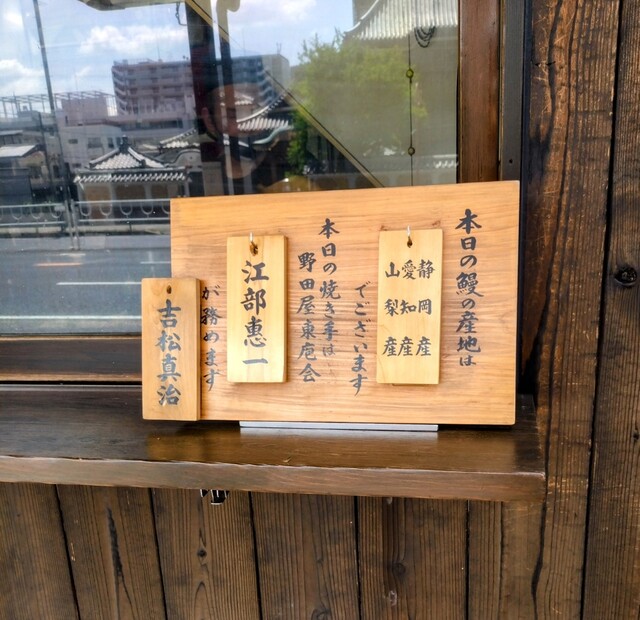 本日の鰻の産地は
静岡産
愛知産
山梨産
でございます
本日の焼き手は
野田屋東庖会
江部恵一
が務めます
吉松真治